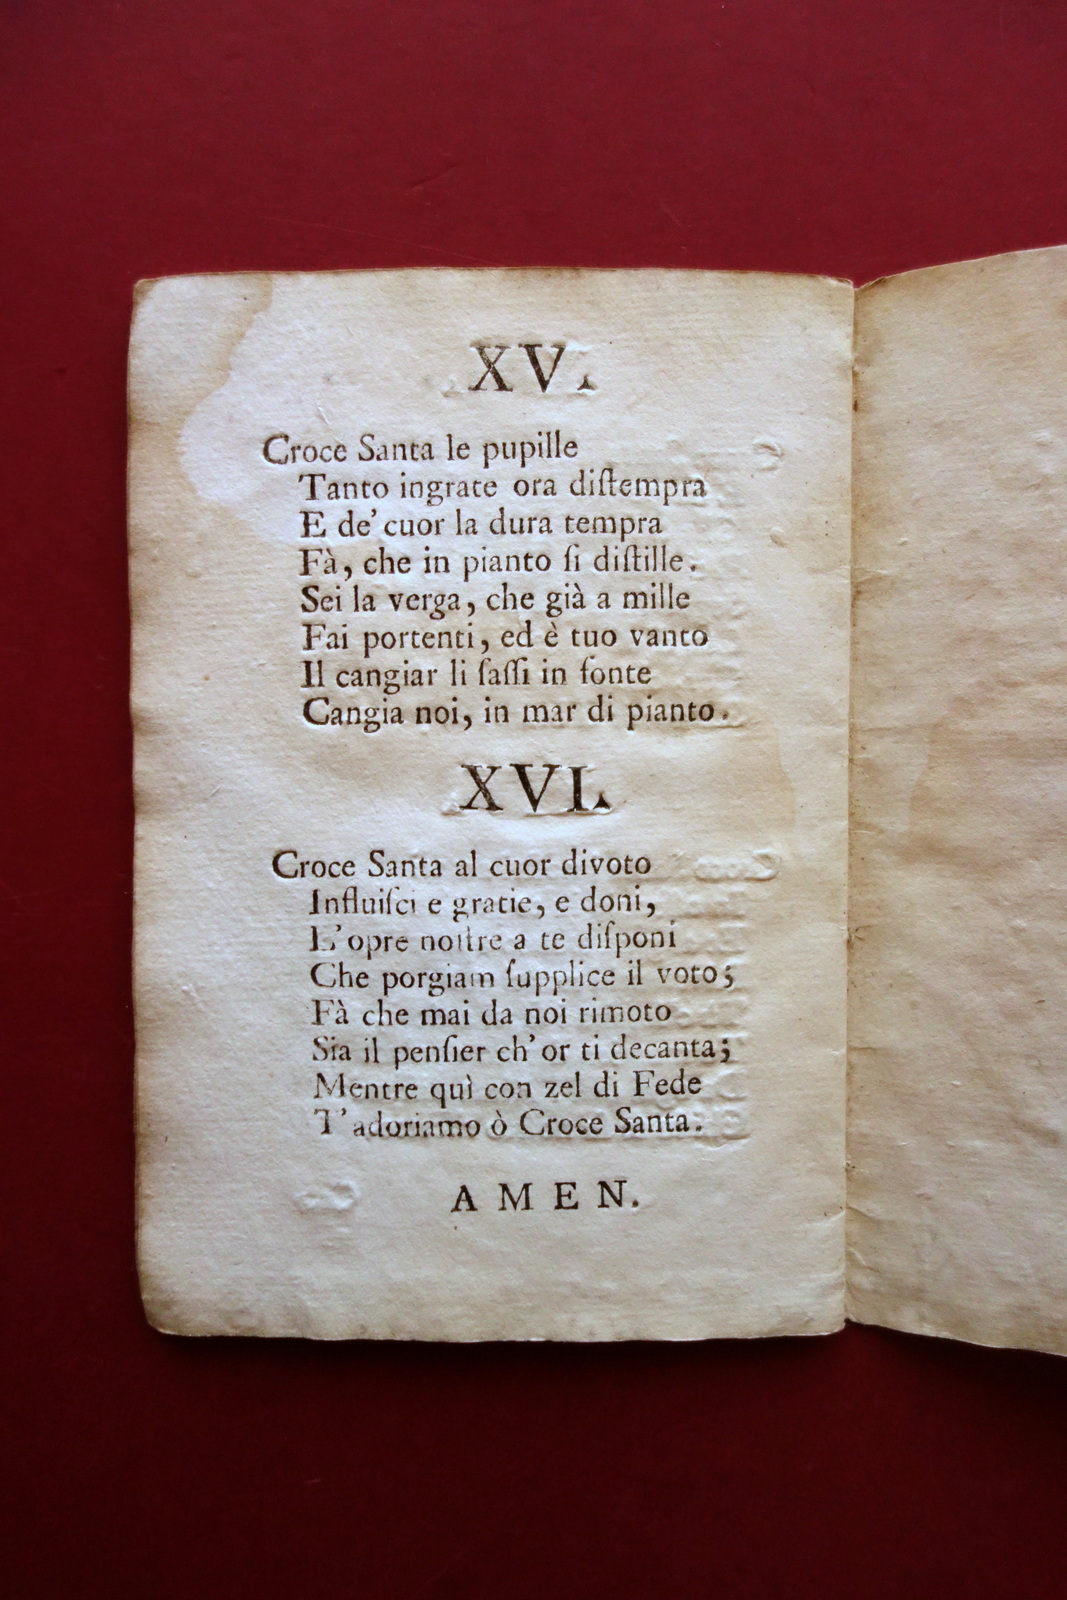 XV.
Croce Santa le pupille
Tanto ingrate ora diſtempra
E de' cuor la dura tempra
Fà, che in pianto ſi diſtille.
Sei la verga, che già a mille
Fai portenti, ed è tuo vanto
Il cangiar li ſaſſi in fonte
Cangia noi, in mar di pianto.
XVI.
Croce Santa al cuor divoto
Influiſci e gratie, e doni,
L'opre noſtre a te diſponi
Che porgiam ſupplice il voto;
Fà che mai da noi rimoto
Sia il penſier ch' or ti decanta;
Mentre quì con zel di Fede
T' adoriamo ò Croce Santa.
AMEN.